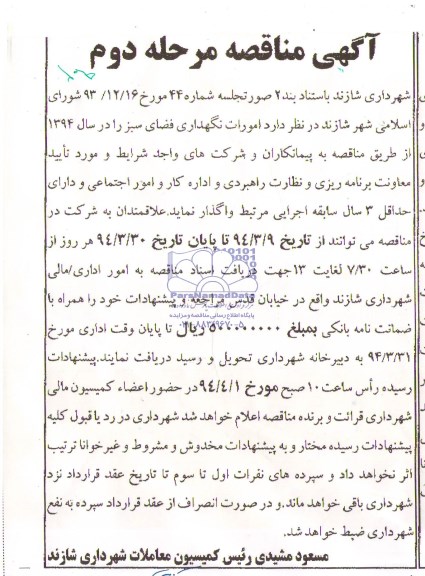 آگهی مناقصه مرحله دوم
شهرداری شازند باستناد بند۲ صورتجلسه شماره۴۴ مورخ۹۳/۱۲/۱۶ شورای
اسلامی شهر شازند در نظر دارد امورات نگهداری فضای سبز را در سال ۱۳۹۴
از طریق مناقصه به پیمانکاران و شرکت های واجد شرایط و مورد تأیید
معاونت برنامه ریزی و نظارت راهبردی و اداره کار و امور اجتماعی و دارای
حداقل ۳ سال سابقه اجرایی مرتبط واگذار نماید.علاقمندان به شرکت در
مناقصه می توانند از تاریخ ۹۴/۳/۹ تا پایان تاریخ ۹۴/۳/۳۰ هر روز از
ساعت ۷/۳۰ لغایت ۱۳جهت دریافت اسناد مناقصه به امور اداری/مالی
شهرداری شازند واقع در خیابان قدس مراجعه و پیشنهادات خود را همراه با
ضمانت نامه بانکی بمبلغ ۵۰۰۰۰۰۰۰۰ ریال تا پایان وقت اداری مورخ
۹۴/۳/۳۱ به دبیرخانه شهرداری تحویل و رسید دریافت نمایند.پیشنهادات
رسیده رأس ساعت ۱۰ صبح مورخ ۹۴/۴/۱ در حضور اعضاء کمیسیون مالی
شهرداری قرائت و برنده مناقصه اعلام خواهد شد شهرداری در رد یا قبول کلیه
پیشنهادات رسیده مختار و به پیشنهادات مخدوش و مشروط و غیرخوانا ترتیب
اثر نخواهد داد و سپرده های نفرات اول تا سوم تا تاریخ عقد قرارداد نزد
شهرداری باقی خواهد ماند.و در صورت انصراف از عقد قرارداد سپرده به نفع
شهرداری ضبط خواهد شد.
مسعود مشیدی رئیس کمیسیون معاملات شهرداری شازند
ParsNamadData
پایگاه اطلاع رسانی مناقصه و مزایده